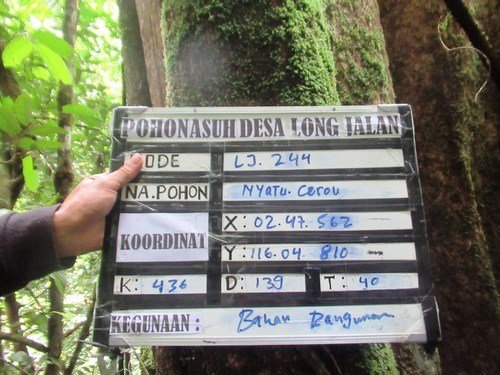 POHONASUH DESA LONG JALAN
KODE LJ. 244
NA.POHON NYatu. Cerou
KOORDINAT X: 02.47.562
Y: 116.04.810
K: 436 D: 139 T: 40
KEGUNAAN : Bahan Bangunan